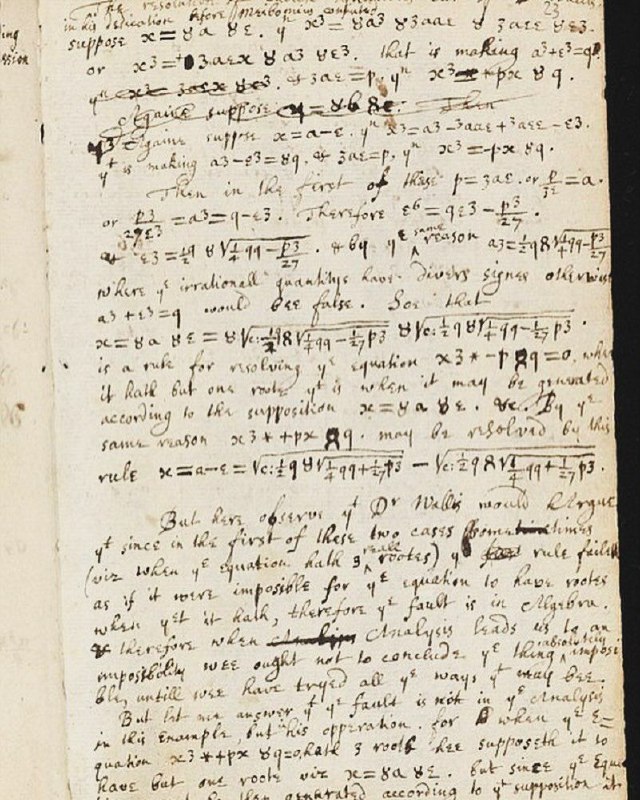 The resolution
suppose x=8a 8ε. yⁿ x3=8a3 83aaε 8 3aεε 8ε3.
or x3=+03aεx 8a3 8ε3. that is making a3+ε3=q
yⁿ x3= 3aεx 8ε3. & 3aε=p. yⁿ x3 = +px 8q.
Againe suppose Then
Againe suppose x=a-ε. yⁿ x3=a3-3aaε+3aεε-ε3.
yᵗ is making a3-ε3=8q. & 3aε=p. yⁿ x3=-px 8q.
Then in the first of these p=3aε. or p/3ε=a.
or p3/27ε3=a3=q-ε3. Therefore ε6=qε3-p3/27.
& ε3=½q 8√¼qq-p3/27. & by yᵉ same reason a3=½q8√¼qq-p3/27
where yᵉ irrationall quantitys have divers signes otherwise
a3+ε3=q would bee false. Soe that
x=8a 8ε=8√c:½q8√¼qq-1/27p3 8√c:½q8√¼qq-1/27p3.
is a rule for resolving yᵉ equation x3*-p8q=0, when
it hath but one roote yᵗ is when it may be generated
according to the supposition x=8a 8ε. &c. By yᵉ
same reason x3*+px 8q. may be resolved by this
rule x=a-ε=√c:½q8√¼qq+1/27p3 -√c:½q8√¼qq+1/27p3.
But here observe yᵗ Dr Wallis would Argue
yᵗ since in the first of these two cases sometimes
(viz when yᵉ equation hath 3 reall rootes) yᵉ rule faileth
as if it were impossible for yᵉ equation to have rootes
when yet it hath, therefore yᵉ fault is in Algebra.
& therefore when Analysis leads us to an
impossibility wee ought not to conclude yᵉ thing absolutely impossi
ble, untill wee have tryed all yᵉ ways yᵗ may bee.
But let me answer yᵗ yᵉ fault is not in yᵉ Analysis
in this Example, but his opperation. for when yᵉ E=
quation x3*+px 8q=0 hath 3 roots hee supposeth it to
have but one roote viz x=8a 8ε. but since yᵉ Equa
then generated according to yᵗ supposition it